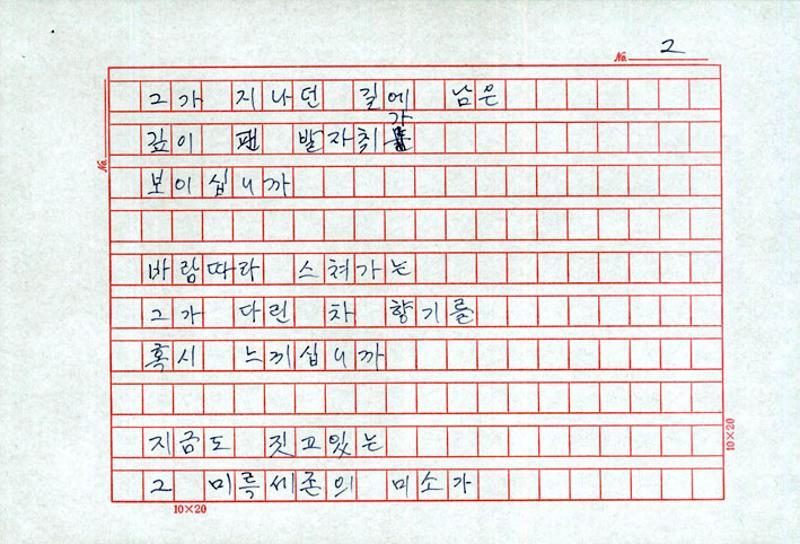 No. 2
그가 지나던 길에 남은
깊이 팬 발자취가
보이십니까
바람따라 스쳐가는
그가 다린 차 향기를
혹시 느끼십니까
지금도 짓고있는
그 미륵세존의 미소가
No.
10×20
10×20